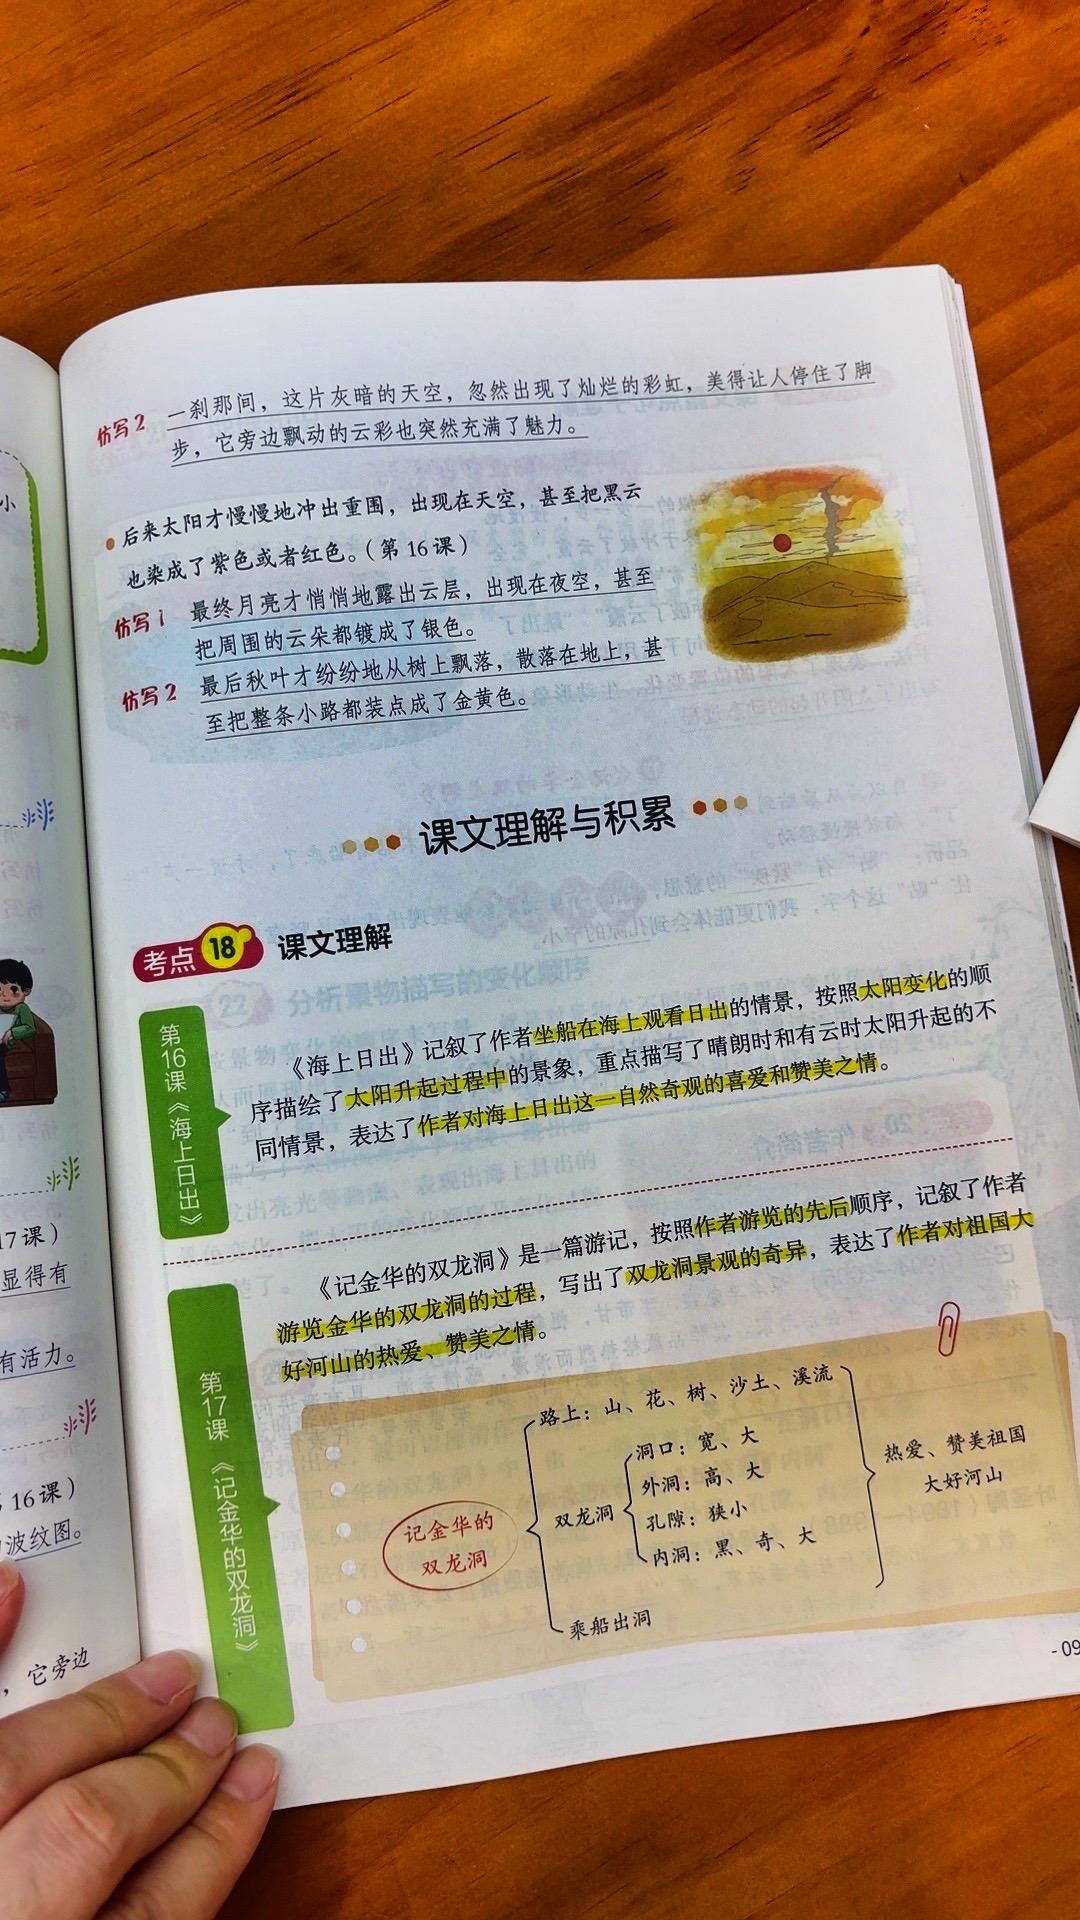 小
17课）
显得有
有活力。
16课）
波纹图。
，它旁边
仿写2 一刹那间，这片灰暗的天空，忽然出现了灿烂的彩虹，美得让人停住了脚
步，它旁边飘动的云彩也突然充满了魅力。
后来太阳才慢慢地冲出重围，出现在天空，甚至把黑云
也染成了紫色或者红色。（第16课）
仿写1 最终月亮才悄悄地露出云层，出现在夜空，甚至
把周围的云朵都镀成了银色。
仿写2 最后秋叶才纷纷地从树上飘落，散落在地上，甚
至把整条小路都装点成了金黄色。
课文理解与积累
考点 18 课文理解
第16课《海上日出》
《海上日出》记叙了作者坐船在海上观看日出的情景，按照太阳变化的顺
序描绘了太阳升起过程中的景象，重点描写了晴朗时和有云时太阳升起的不
同情景，表达了作者对海上日出这一自然奇观的喜爱和赞美之情。
第17课《记金华的双龙洞》
《记金华的双龙洞》是一篇游记，按照作者游览的先后顺序，记叙了作者
游览金华的双龙洞的过程，写出了双龙洞景观的奇异，表达了作者对祖国大
好河山的热爱、赞美之情。
记金华的
双龙洞
路上：山、花、树、沙土、溪流
双龙洞
洞口：宽、大
外洞：高、大
孔隙：狭小
内洞：黑、奇、大
乘船出洞
热爱、赞美祖国
大好河山
-09